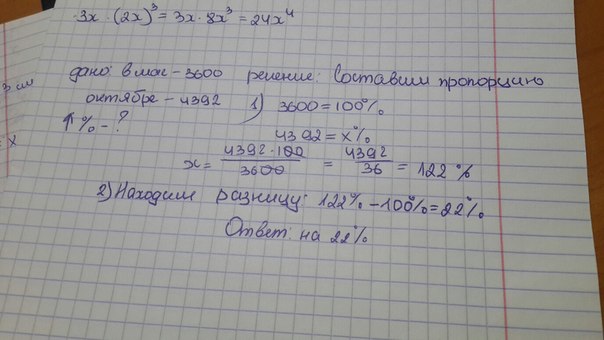 3x · (2x)³ = 3x · 8x³ = 24x⁴
дано: в мае – 3600 решение: Составим пропорцию
октябре – 4392 1) 3600 = 100%
↑% – ? 4392 = x%
x = 4392·100/3600 = 4392/36 = 122%
2) Находим разницу: 122% – 100% = 22%
Ответ: на 22%
3 см
= x